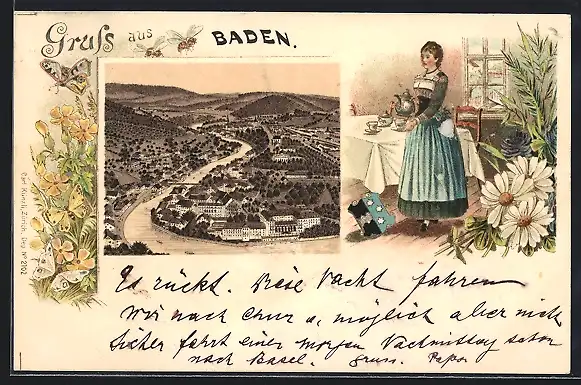 Gruss aus BADEN.
Carl Künzli, Zürich. Dep. No. 2102
Es rückt. Diese Nacht fahren
wir nach Chur u. möglich aber nicht
sicher fährt einer morgen Nachmittag schon
nach Basel. Gruss. Papa